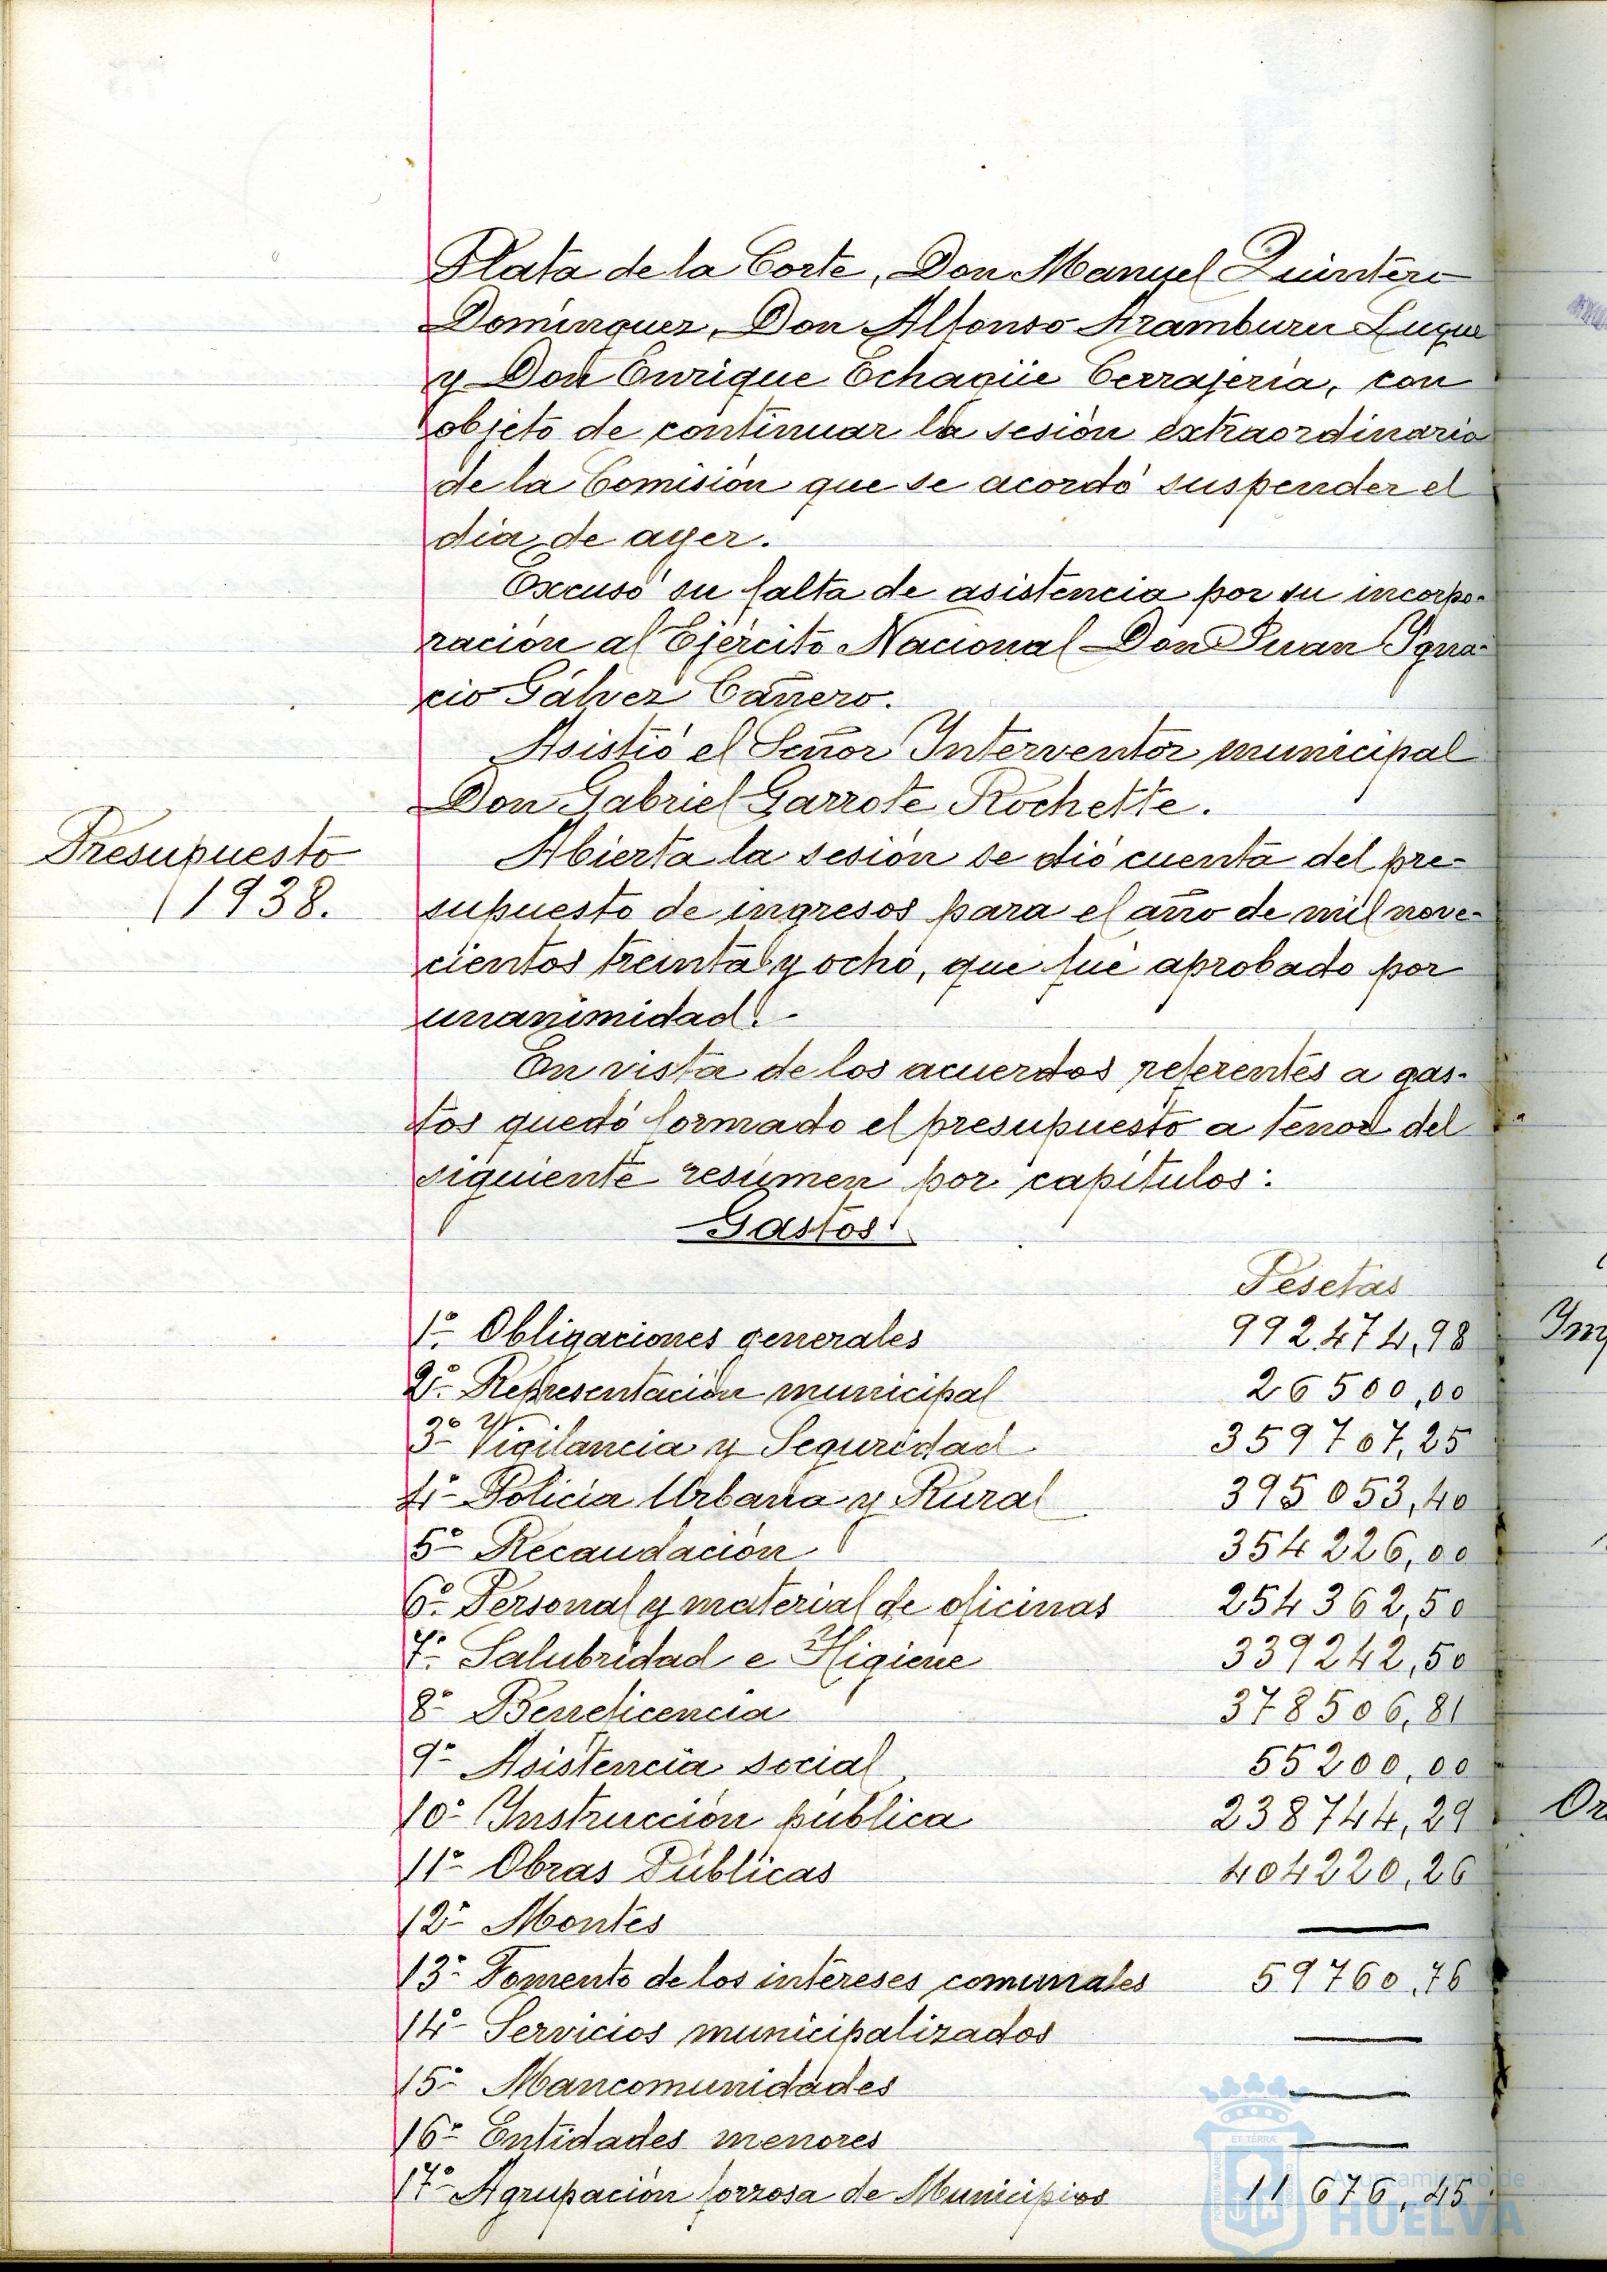 Plata de la Corte, Don Manuel Quintero
Domínguez, Don Alfonso Aramburu Luque
y Don Enrique Echagüe Cerrajería, con
objeto de continuar la sesión extraordinaria
de la Comisión que se acordó suspender el
día de ayer.
Excusó su falta de asistencia por su incorpo-
ración al Ejército Nacional Don Juan Igna-
cio Gálvez Cañero.
Asistió el Señor Interventor municipal
Don Gabriel Garrote Rochette.
Presupuesto
1938.
Abierta la sesión se dió cuenta del pre-
supuesto de ingresos para el año de mil nove-
cientos treinta y ocho, que fué aprobado por
unanimidad.-
En vista de los acuerdos referentes a gas-
tos quedó formado el presupuesto a tenor del
siguiente resúmen por capítulos:
Gastos
Pesetas
1º- Obligaciones generales 992474,98
2º- Representación municipal 26500,00
3º- Vigilancia y Seguridad 359767,25
4º- Policía Urbana y Rural 395053,40
5º- Recaudación 354226,00
6º- Personal y material de oficinas 254362,50
7º- Salubridad e Higiene 339242,50
8º- Beneficencia 378506,81
9º- Asistencia social 55200,00
10º- Instrucción pública 238744,29
11º- Obras Públicas 404220,26
12º- Montes —
13º- Fomento de los intereses comunales 59760,76
14º- Servicios municipalizados —
15º- Mancomunidades —
16º- Entidades menores —
17º- Agrupación forzosa de Municipios 11676,45
Ayuntamiento de
HUELVA